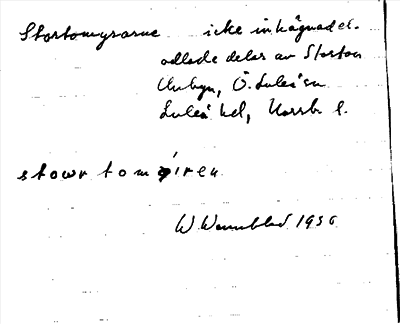 Stortomyrarne icke inhägnade l.
odlade delar av Stortom
Unbyn, Ö. Luleå sn
Luleå hd, Norrb. l.
stowrtomýiren
W. Wennblad 1936